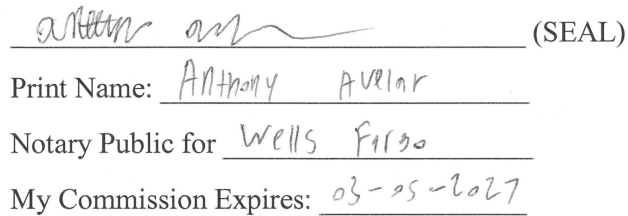 (SEAL)
Print Name: Anthony Avelar
Notary Public for Wells Fargo
My Commission Expires: 03-05-2027